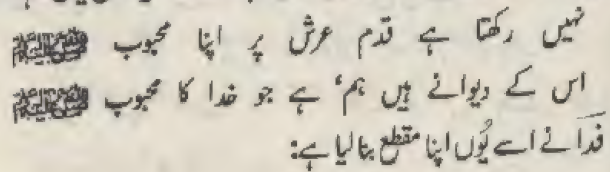 نہیں رکھتا ہے قدم عرش پر اپنا محبوب ﷺ
اس کے دیوانے ہیں ہم‘ ہے جو خدا کا محبوب ﷺ
فداؔ نے اسے یُوں اپنا مقطع بنا لیا ہے: